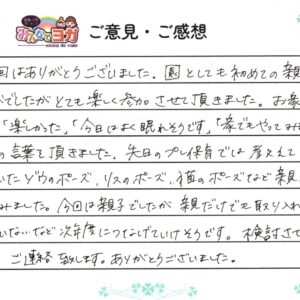 みんなでヨガ
minna de yoga
ご意見・ご感想
回はありがとうございました。園としても初めての親
でしたがとても楽しく参加させて頂きました。お家
「楽しかった」「今日はよく眠れそうです」「家でもやってみ
の言葉を頂きました。先日のプレ保育では教えて
いたゾウのポーズ、リスのポーズ、猫のポーズなど親
みました。今回は親子でしたが親だけでも取り入れ
いないなど次年度につなげていけそうです。検討させ
ご連絡致します。ありがとうございました。